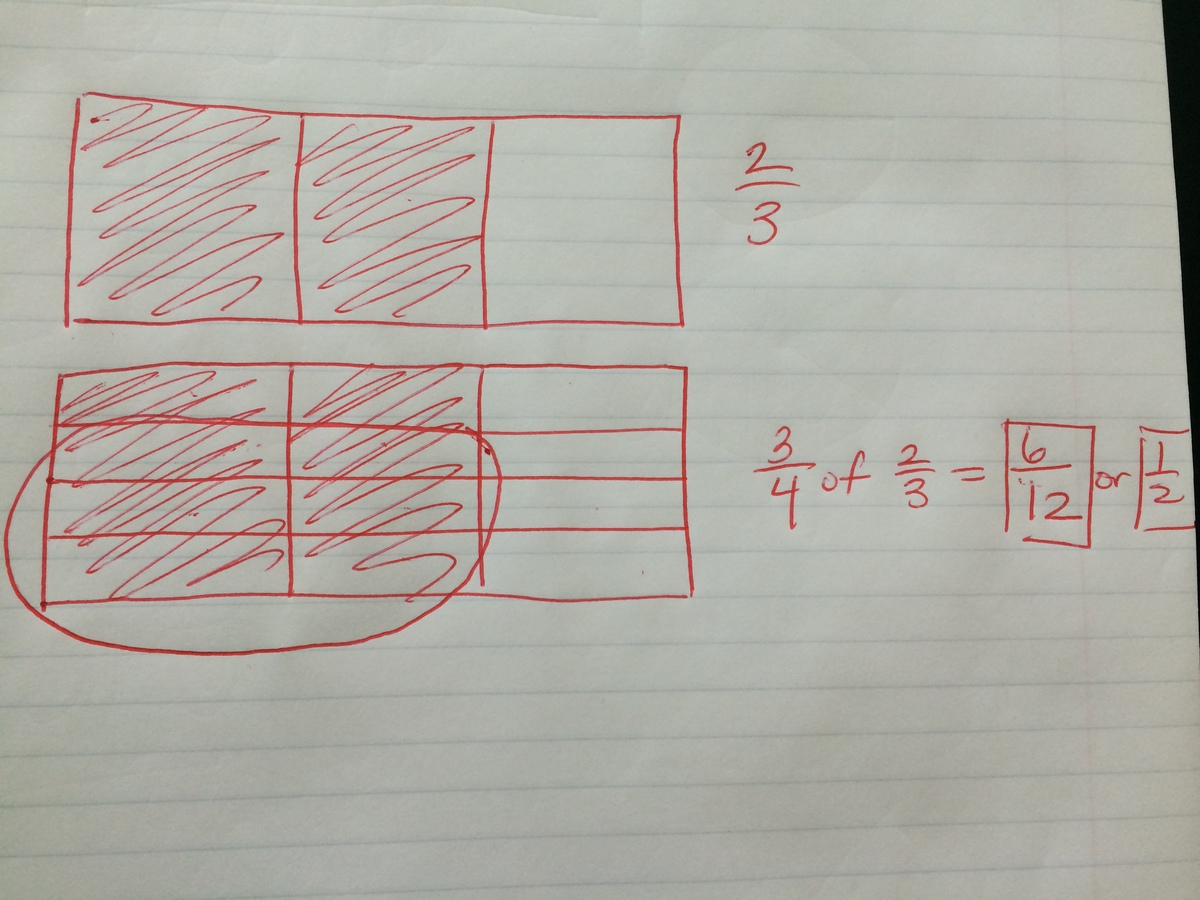 2/3
3/4 of 2/3 = 6/12 or 1/2